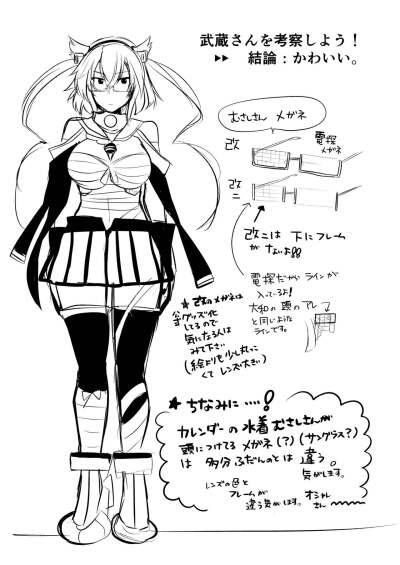 武蔵さんを考察しよう！
▶▶ 結論：かわいい。
むさしさん メガネ
改
電探
メガネ
改
二
改二は 下にフレーム
が ないよ
電探だから ラインが
入ってるよ！
大和の 頭の アレ
と同じような
ラインです。
★ 改のメガネは
公式グッズ化
してるので
気になる人は
みて下さい
(絵よりも少し丸っこ
くて レンズ大きい)
★ ちなみに…!
カレンダーの 水着 むさしさんが
頭につけてる メガネ(?)(サングラス?)
は 多分 ふだんのとは 違う。
気がします。
レンズの色と
フレームが
違う気がします。
オシャレ
さん